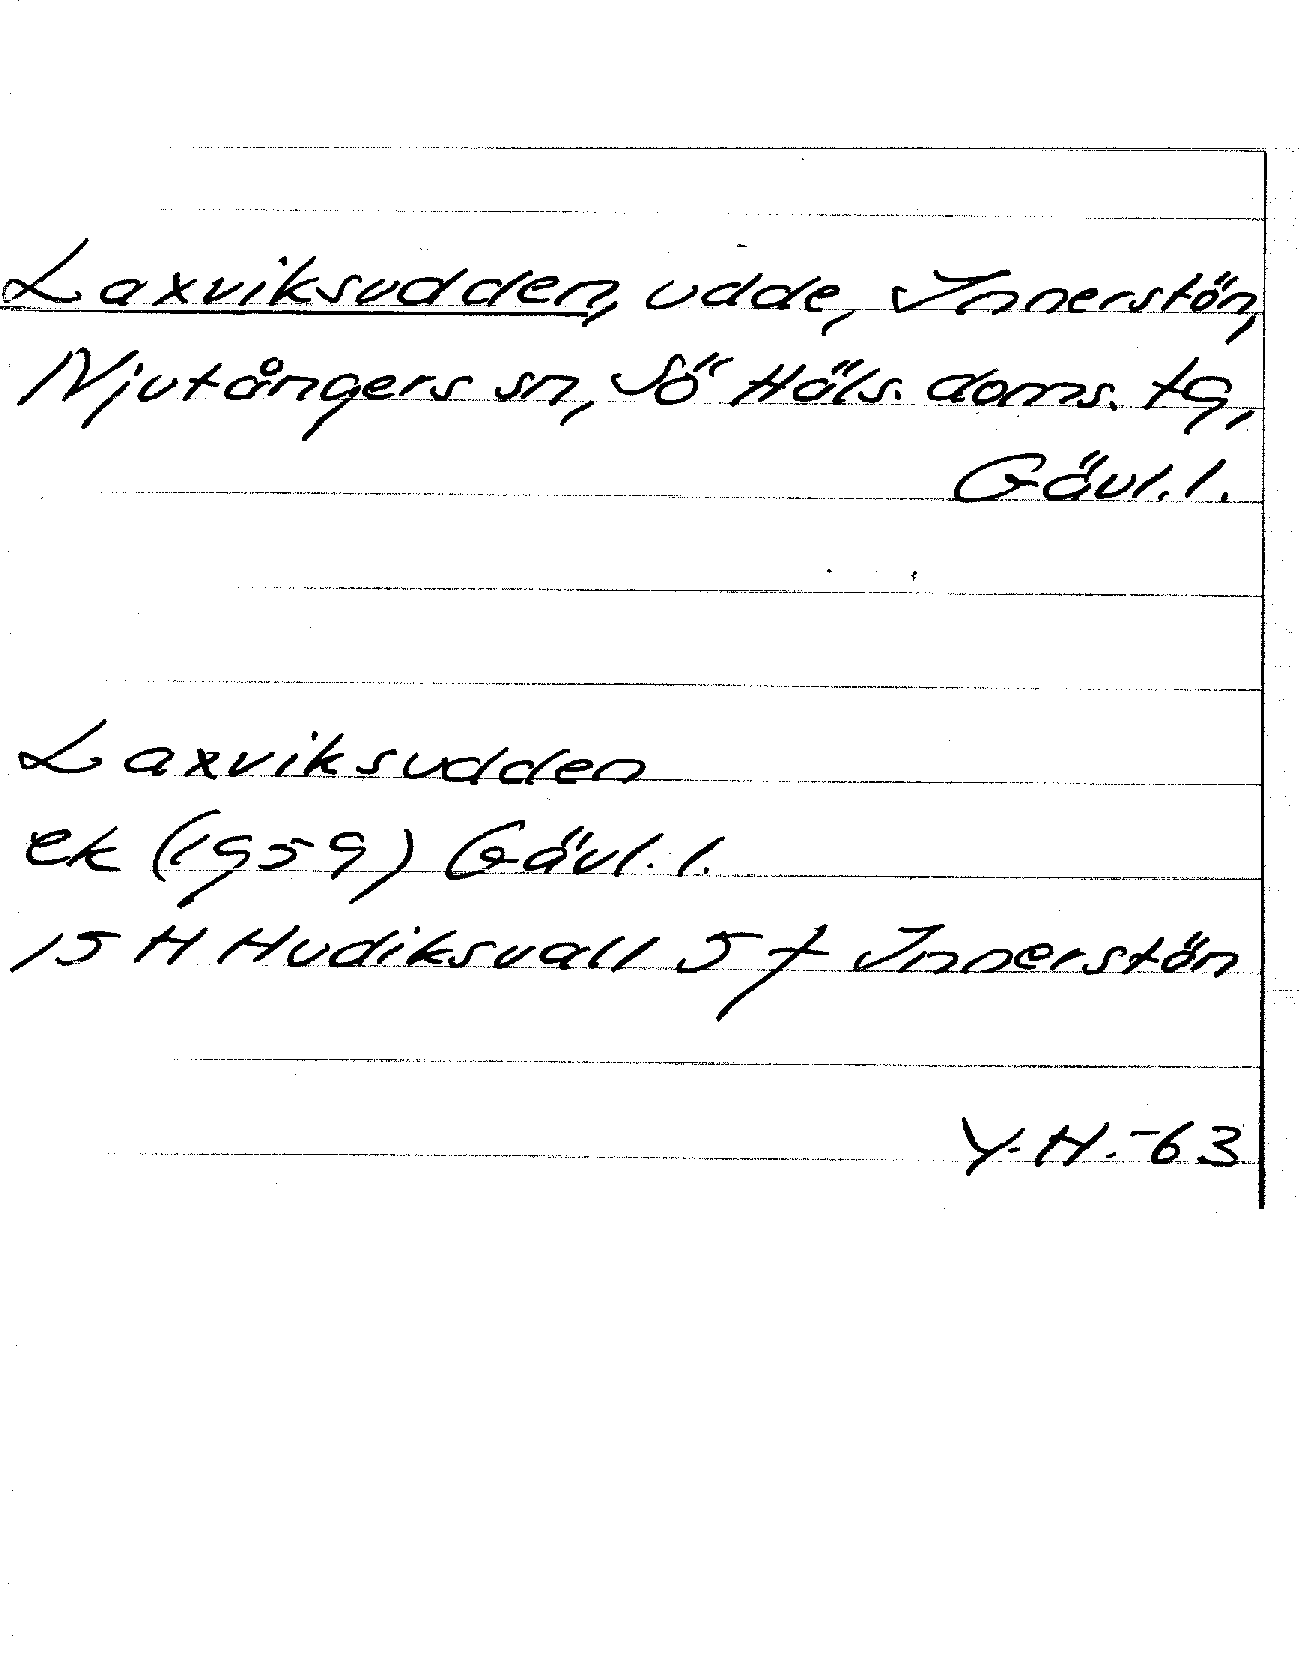 Laxviksudden, udde, Innerstön,
Njutångers sn, Sö Häls. doms. tg,
Gävl. l.
Laxviksudden
ek (1959) Gävl. l.
15 H Hudiksvall 5 f Innerstön
Y. H. -63